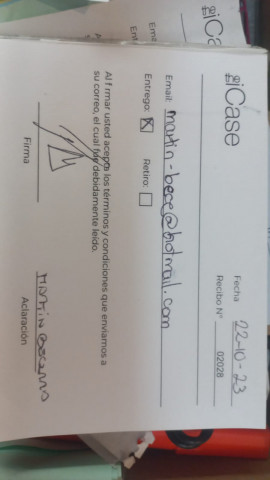 iCase
Fecha 22-10-23
Recibo N° 02028
Email: martin-bece@hotmail.com
Entrego: ☒ Retiro: ☐
Al firmar usted acepta los términos y condiciones que enviamos a
su correo, el cual fue debidamente leído.
Firma
Aclaración
iCa
Ema
Ent